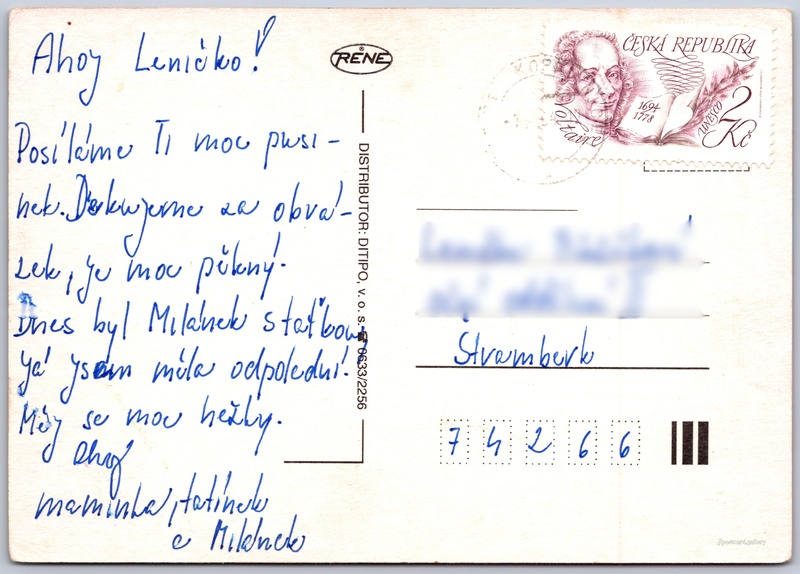 Ahoj Leničko!
Posíláme Ti moc pusi-
nek. Děkujeme za obrá-
zek, je moc pěkný.
Dnes byl Milánek s taťkou
já jsem měla odpolední.
Měj se moc hezky.
Ahoj
maminka, tatínek
a Milánek
RENE
DISTRIBUTOR: DITIPO, v. o. s. ☎ 0633/2256
ČESKÁ REPUBLIKA
1694
1778
Voltaire
UNESCO
2
Kč
Štramberk
74266